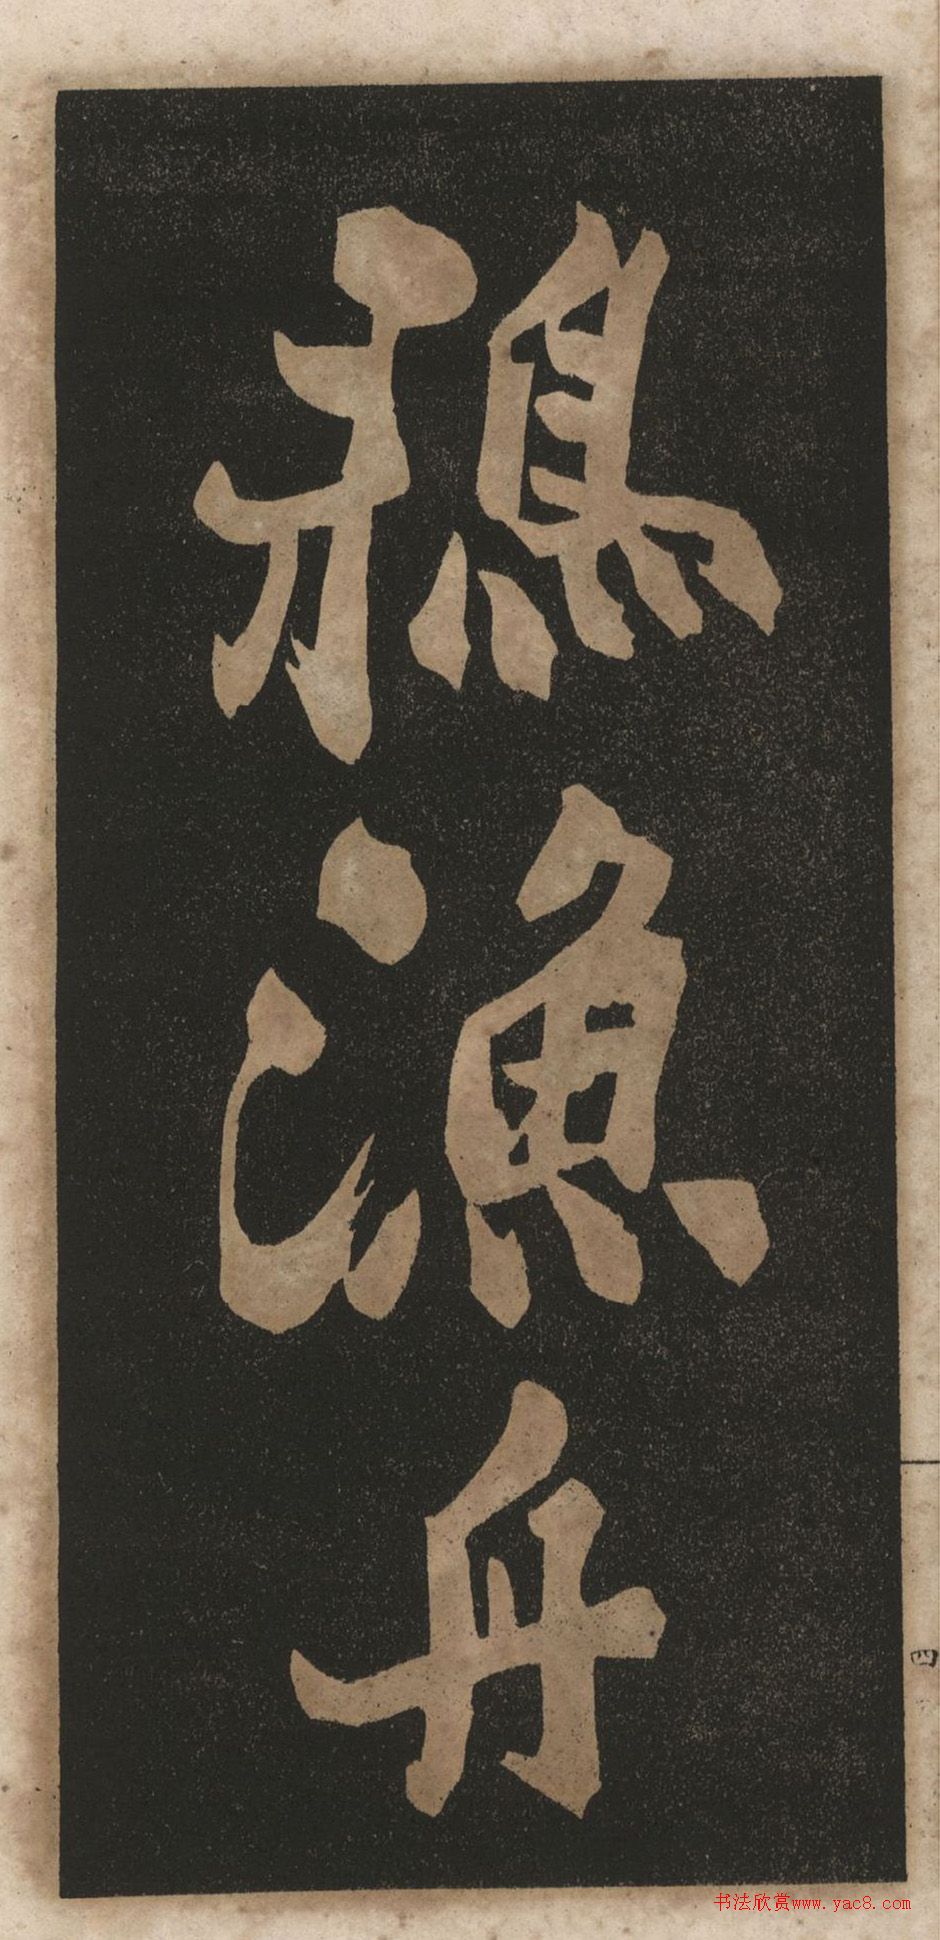 鴉漁舟
四
书法欣赏www.yac8.com